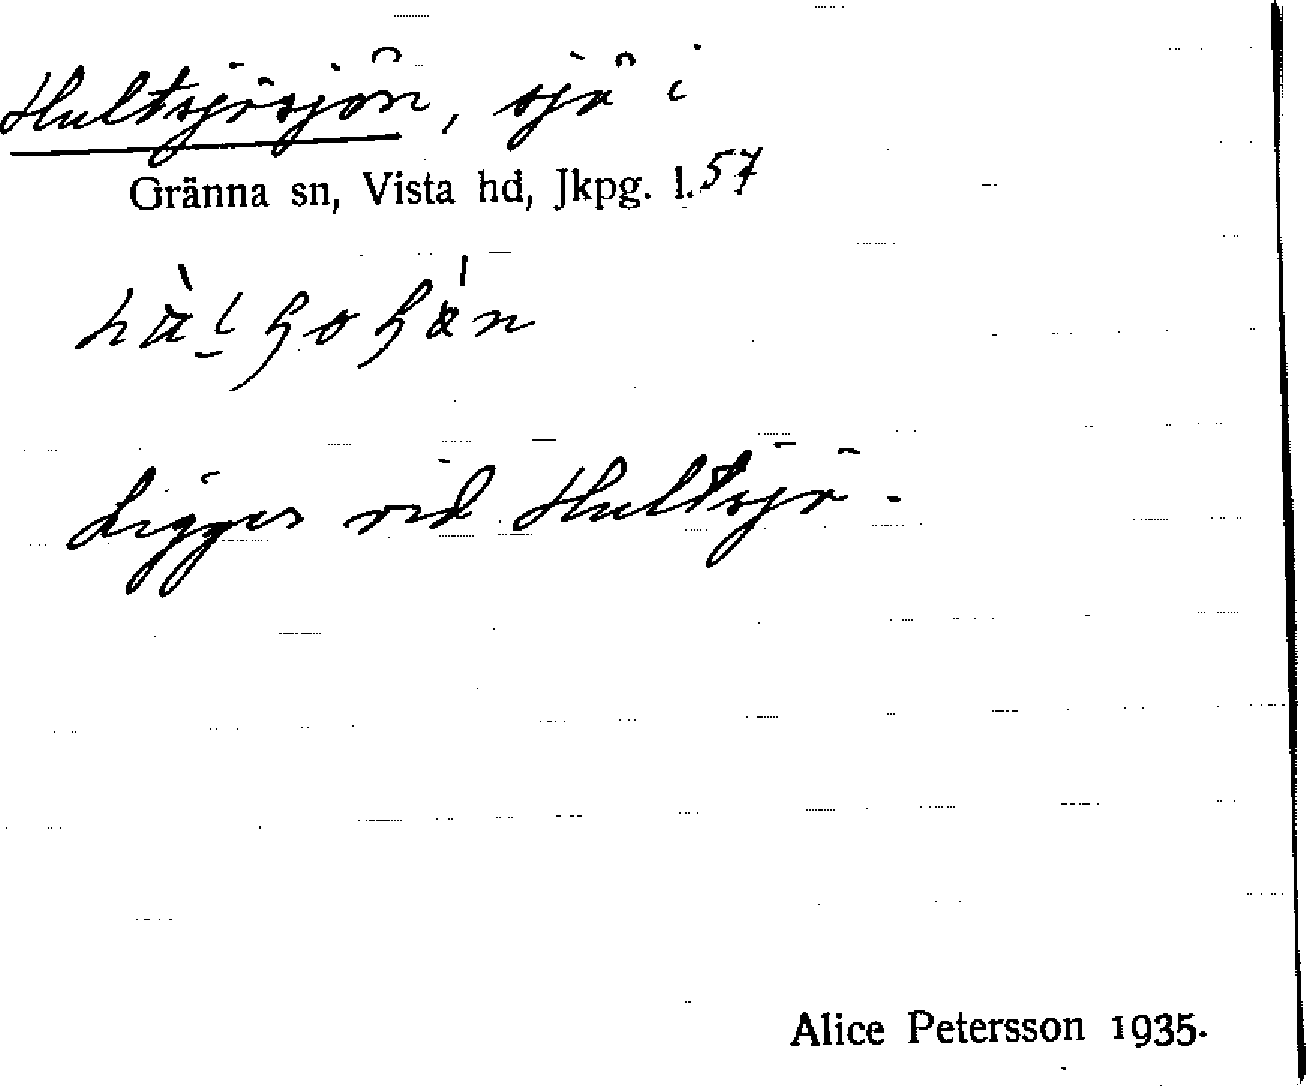 Hultsjösjön, sjö i
Gränna sn, Vista hd, Jkpg. l. 57
Ligger vid Hultsjö.
Alice Petersson 1935.